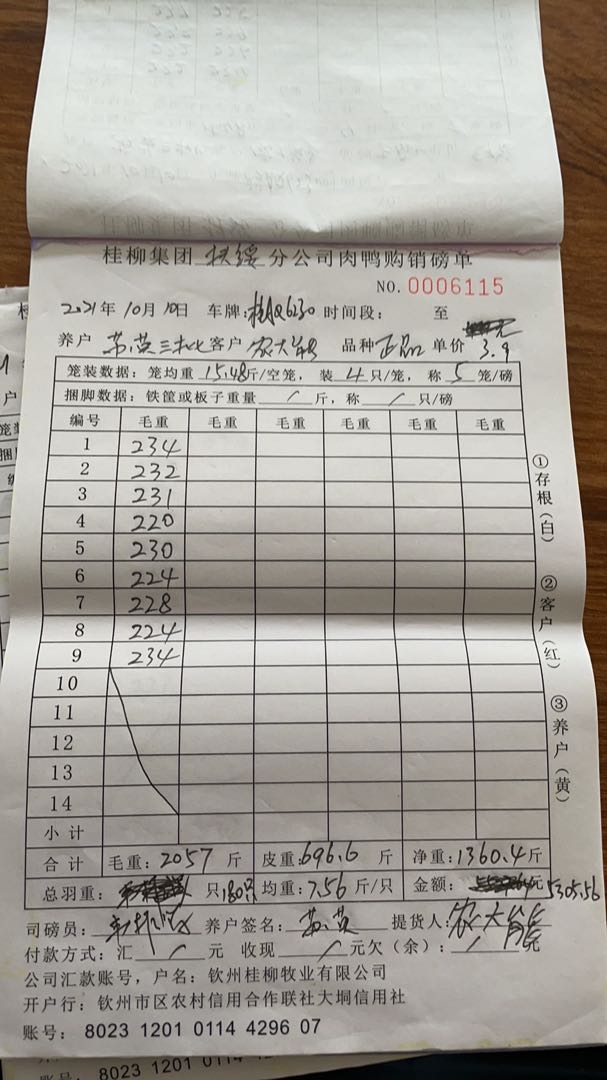 桂柳集团 扶绥 分公司肉鸭购销磅单
NO. 0006115
2021年 10月 10日 车牌: 桂AQ6230 时间段: 至
养户 苏英三批 客户 农大能 品种 正品 单价 3.9
笼装数据: 笼均重 15.48斤/空笼, 装 4 只/笼, 称 5 笼/磅
捆脚数据: 铁筐或板子重量 / 斤, 称 / 只/磅
编号 毛重 毛重 毛重 毛重 毛重
1 234
2 232
3 231
4 220
5 230
6 224
7 228
8 224
9 234
10
11
12
13
14
小计
合计 毛重: 2057 斤 皮重: 696.6 斤 净重: 1360.4斤
总羽重: 只 180只 均重: 7.56 斤/只 金额: 元 5305.56
司磅员: 养户签名: 苏英 提货人: 农大能
付款方式: 汇 / 元 收现 / 元欠(余): /
公司汇款账号, 户名: 钦州桂柳牧业有限公司
开户行: 钦州市区农村信用合作联社大垌信用社
账号: 8023 1201 0114 4296 07
①存根(白) ②客户(红) ③养户(黄)
账号: 8023 1201 0114